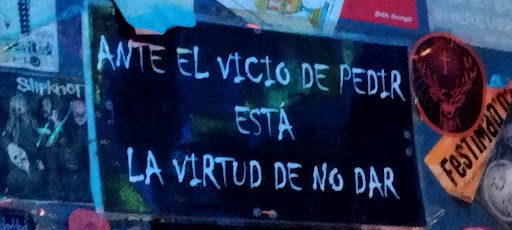 Slipknot
ANTE EL VICIO DE PEDIR
ESTÁ
LA VIRTUD DE NO DAR